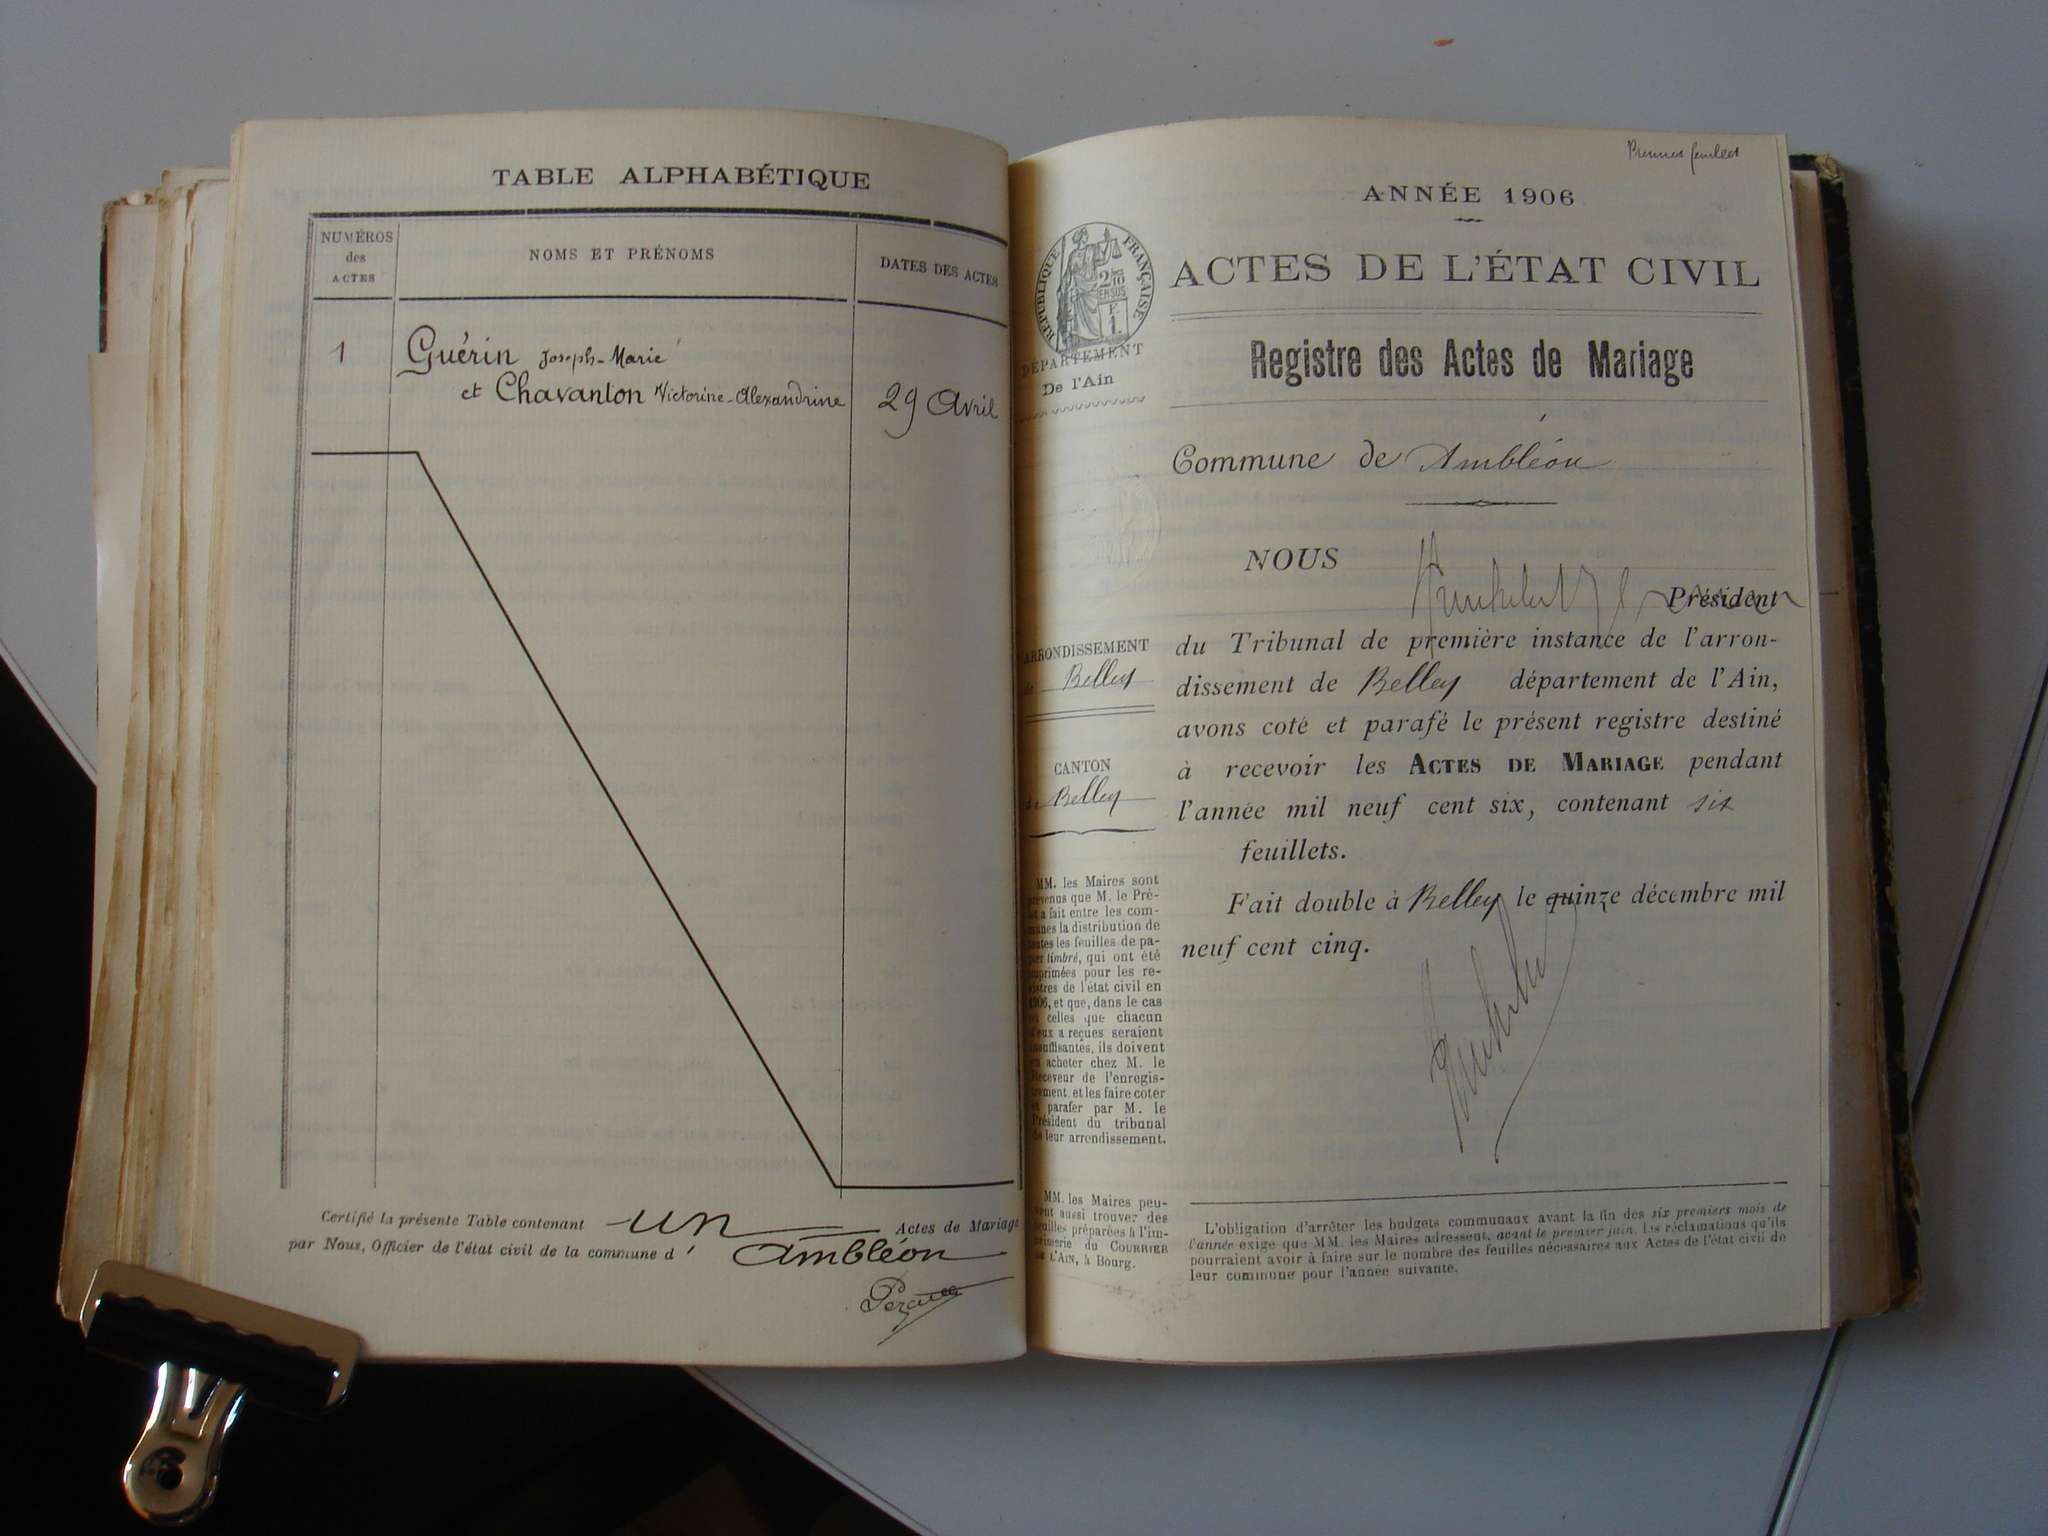 TABLE ALPHABÉTIQUE
NUMÉROS
des
ACTES
NOMS ET PRÉNOMS
DATES DES ACTES
1
Guérin Joseph-Marie
et Chavanton Victorine-Alexandrine
29 Avril
Certifié la présente Table contenant un Actes de Mariage
par Nous, Officier de l'état civil de la commune d' Ambléon
ANNÉE 1906
RÉPUBLIQUE FRANÇAISE
DÉPARTEMENT
De l'Ain
ACTES DE L'ÉTAT CIVIL
Registre des Actes de Mariage
Commune de Ambléon
NOUS
Président
du Tribunal de première instance de l'arron-
dissement de Belley département de l'Ain,
avons coté et parafé le présent registre destiné
à recevoir les ACTES DE MARIAGE pendant
l'année mil neuf cent six, contenant six
feuillets.
Fait double à Belley le quinze décembre mil
neuf cent cinq.
ARRONDISSEMENT
de Belley
CANTON
de Belley
MM. les Maires sont
prévenus que M. le Pré-
fet a fait entre les com-
munes la distribution de
toutes les feuilles de pa-
pier timbré, qui ont été
imprimées pour les re-
gistres de l'état civil en
1906, et que, dans le cas
où celles que chacun
d'eux a reçues seraient
insuffisantes, ils doivent
en acheter chez M. le
Receveur de l'enregis-
trement et les faire coter
et parafer par M. le
Président du tribunal
de leur arrondissement.
MM. les Maires peu-
vent aussi trouver des
feuilles préparées à l'im-
primerie du COURRIER
DE L'AIN, à Bourg.
L'obligation d'arrêter les budgets communaux avant la fin des six premiers mois de
l'année exige que MM. les Maires adressent, avant le premier juin, les réclamations qu'ils
pourraient avoir à faire sur le nombre des feuilles nécessaires aux Actes de l'état civil de
leur commune pour l'année suivante.